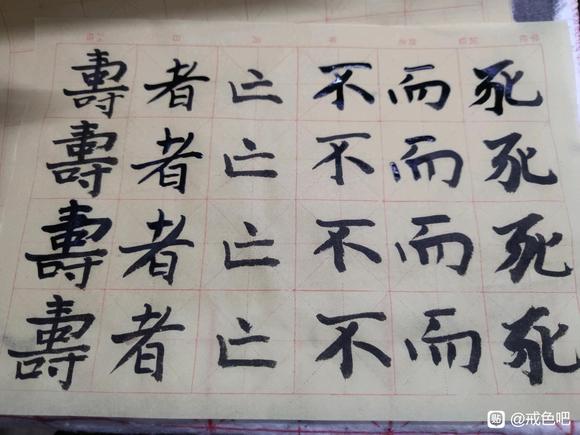 死而不亡者壽
死而不亡者壽
死而不亡者壽
死而不亡者壽
贴 @戒色吧